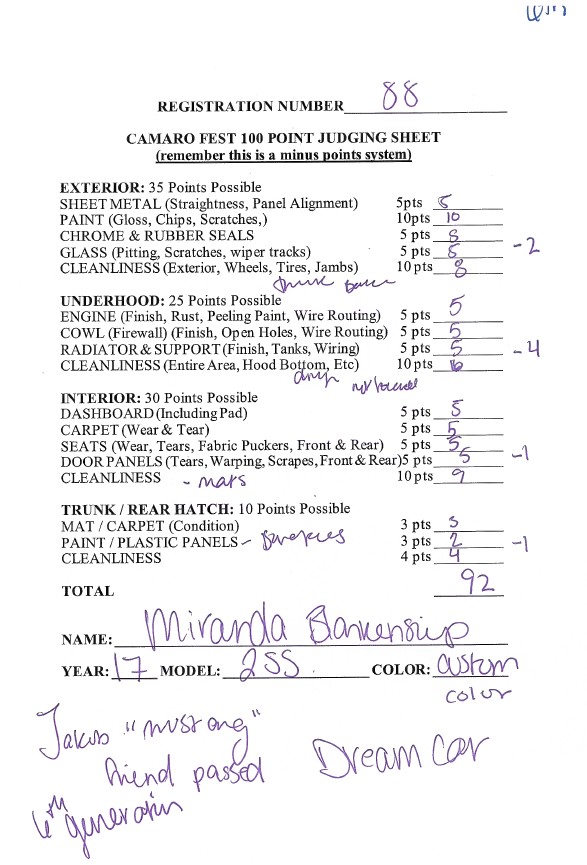 REGISTRATION NUMBER 88
CAMARO FEST 100 POINT JUDGING SHEET
(remember this is a minus points system)
EXTERIOR: 35 Points Possible
SHEET METAL (Straightness, Panel Alignment) 5pts 5
PAINT (Gloss, Chips, Scratches,) 10pts 10
CHROME & RUBBER SEALS 5 pts 5
GLASS (Pitting, Scratches, wiper tracks) 5 pts 5 -2
CLEANLINESS (Exterior, Wheels, Tires, Jambs) 10 pts 8
UNDERHOOD: 25 Points Possible
ENGINE (Finish, Rust, Peeling Paint, Wire Routing) 5 pts 5
COWL (Firewall) (Finish, Open Holes, Wire Routing) 5 pts 5
RADIATOR & SUPPORT (Finish, Tanks, Wiring) 5 pts 5 -4
CLEANLINESS (Entire Area, Hood Bottom, Etc) 10 pts
INTERIOR: 30 Points Possible
DASHBOARD (Including Pad) 5 pts 5
CARPET (Wear & Tear) 5 pts 5
SEATS (Wear, Tears, Fabric Puckers, Front & Rear) 5 pts 5
DOOR PANELS (Tears, Warping, Scrapes, Front & Rear) 5 pts 5 -1
CLEANLINESS - mats 10 pts 9
TRUNK / REAR HATCH: 10 Points Possible
MAT / CARPET (Condition) 3 pts 3
PAINT / PLASTIC PANELS - 3 pts 2 -1
CLEANLINESS 4 pts 4
TOTAL 92
NAME: Miranda
YEAR: 17 MODEL: 2SS COLOR: Custom
color
Jakob "mustang"
friend passed Dream Car
6th generation